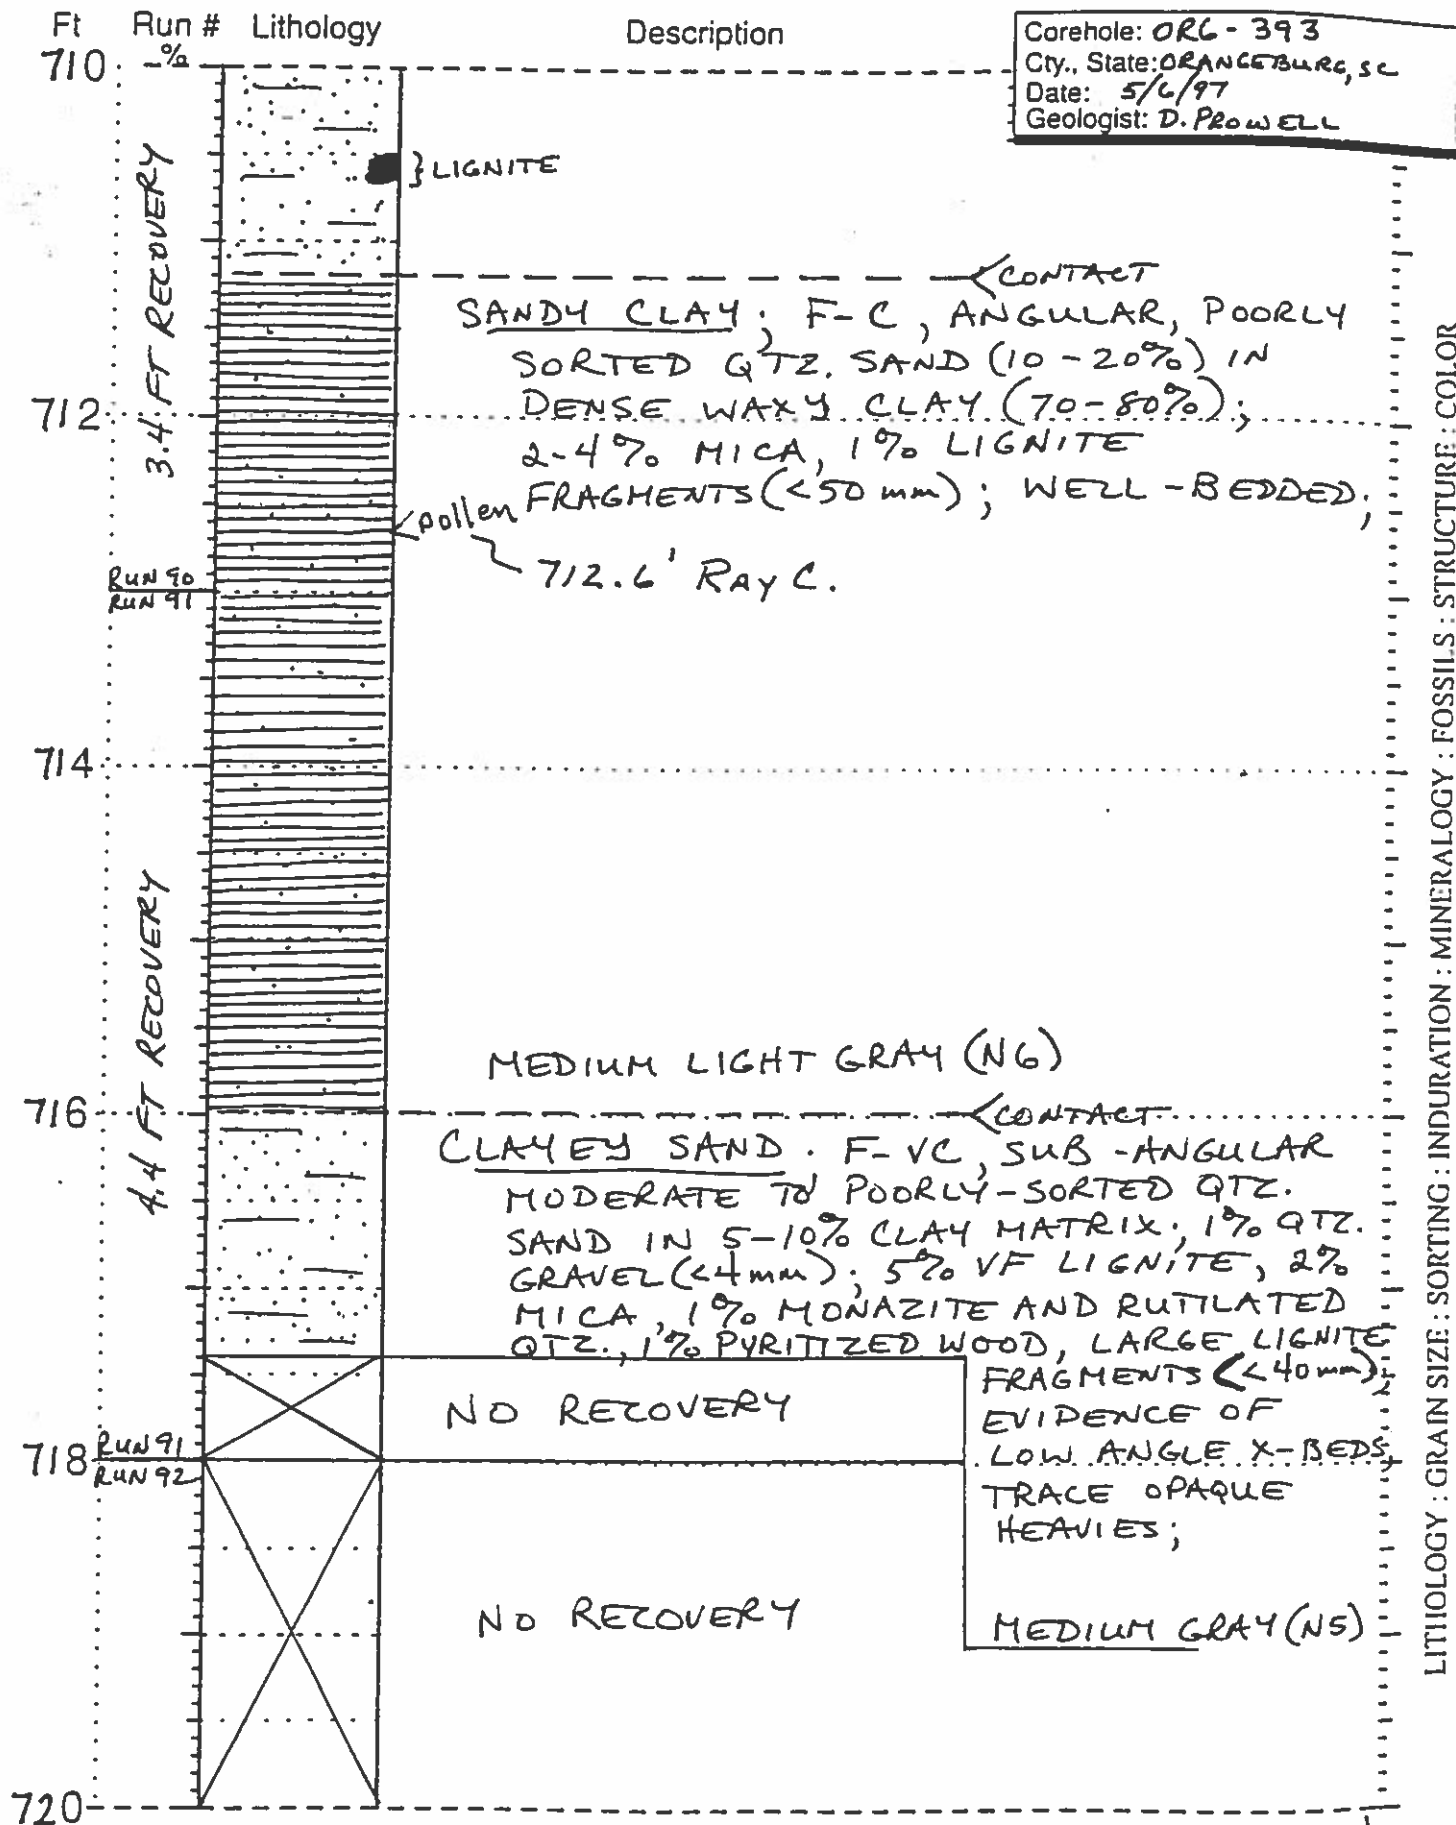 Ft Run # Lithology Description
-%
Corehole: ORG-393
Cty., State: ORANGEBURG, SC
Date: 5/6/97
Geologist: D. PROWELL
710
} LIGNITE
3.4 FT RECOVERY
CONTACT
SANDY CLAY; F-C, ANGULAR, POORLY
SORTED QTZ. SAND (10-20%) IN
712
DENSE WAXY CLAY (70-80%);
2-4% MICA, 1% LIGNITE
FRAGMENTS (<50 mm); WELL-BEDDED;
pollen
712.6' RAY C.
RUN 90
RUN 91
714
4.4 FT RECOVERY
MEDIUM LIGHT GRAY (N6)
716
CONTACT
CLAYEY SAND. F-VC, SUB-ANGULAR
MODERATE TO POORLY-SORTED QTZ.
SAND IN 5-10% CLAY MATRIX; 1% QTZ.
GRAVEL (<4mm); 5% VF LIGNITE, 2%
MICA, 1% MONAZITE AND RUTILATED
QTZ., 1% PYRITIZED WOOD, LARGE LIGNITE
FRAGMENTS (<40mm);
NO RECOVERY
EVIDENCE OF
LOW ANGLE X-BEDS,
718
RUN 91
RUN 92
TRACE OPAQUE
HEAVIES;
NO RECOVERY
MEDIUM GRAY (N5)
720
LITHOLOGY : GRAIN SIZE : SORTING : INDURATION : MINERALOGY : FOSSILS : STRUCTURE : COLOR